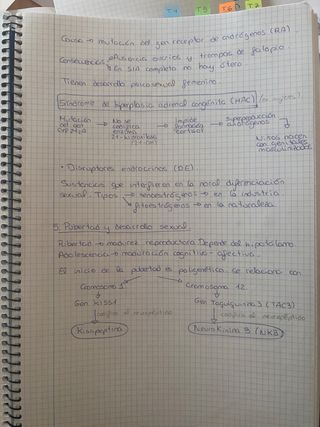 T.4 T.5 T.6 T.7
Causa → mutación del gen receptor de andrógenos (RA).
Consecuencias ausencia ovarios y trompas de falopio
En SIA completo no hay útero
Tienen desarrollo psicosexual femenino.
Síndrome de hiperplasia adrenal congénita (HAC) (en mujeres)
Mutación → No se → Impide → Superproducción
del gen codifica formación andrógenos
CYP21A2 enzima cortisol
21-hidroxilasa
(21-OH)
Niñas nacen
con genitales
masculinizados
• Disruptores endocrinos (DE)
Sustancias que interfieren en la normal diferenciación
sexual. Tipos → xenoestrógenos → en la industria.
fitoestrógenos → en la naturaleza
5. Pubertad y desarrollo sexual.
Pubertad → madurez reproductora. Depende del hipotálamo.
Adolescencia → maduración cognitivo-afectiva.
El inicio de la pubertad es poligenética. Se relaciona con
Cromosoma 1 Cromosoma 12.
Gen KISS1 Gen Taquiquinina 3 (TAC3)
codifica el neuropéptido codifica el neuropéptido
Kisspeptina Neurokinina B (NKB)